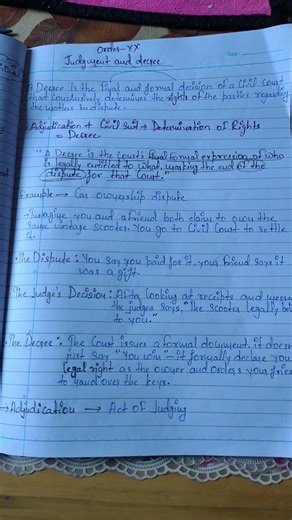 Order-XX
Judgment and decree
A Decree is the final and formal decision of a Civil Court
that conclusively determines the rights of the parties regarding
the matter in dispute.
Adjudication + Civil Suit + Determination of Rights
= Decree
"A Decree is the Court's final formal expression of who
is legally entitled to what, marking the end of the
dispute for that Court."
Example → Car ownership dispute
Imagine you and a friend both claim to own the
same vintage scooter. You go to Civil Court to settle
it.
The Dispute: You say you paid for it, your friend says it
was a gift.
The Judge's Decision: After looking at receipts and
the judge says, The scooter legally
to you."
The Decree: The Court issues a formal document. it doesn
just say "You win" - it formally declare you
legal right as the owner and orders your
to hand over the keys.
→ Adjudication → Act of Judging